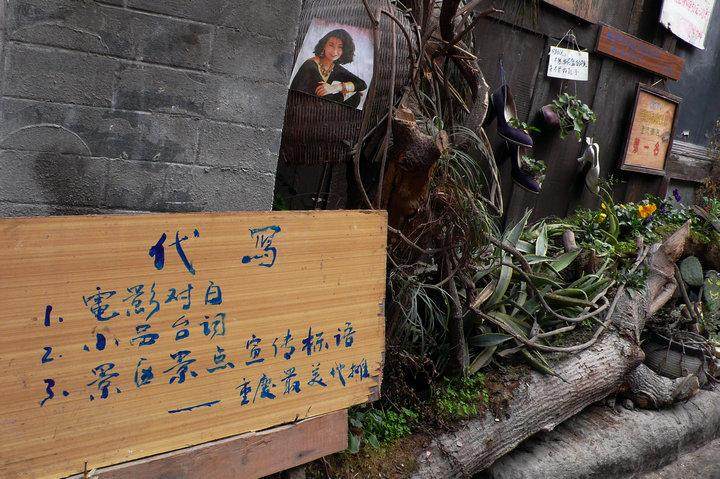 代寫
1. 電影对白
2. 小品台词
3. 景区景点宣传标语
——重慶最美代攤